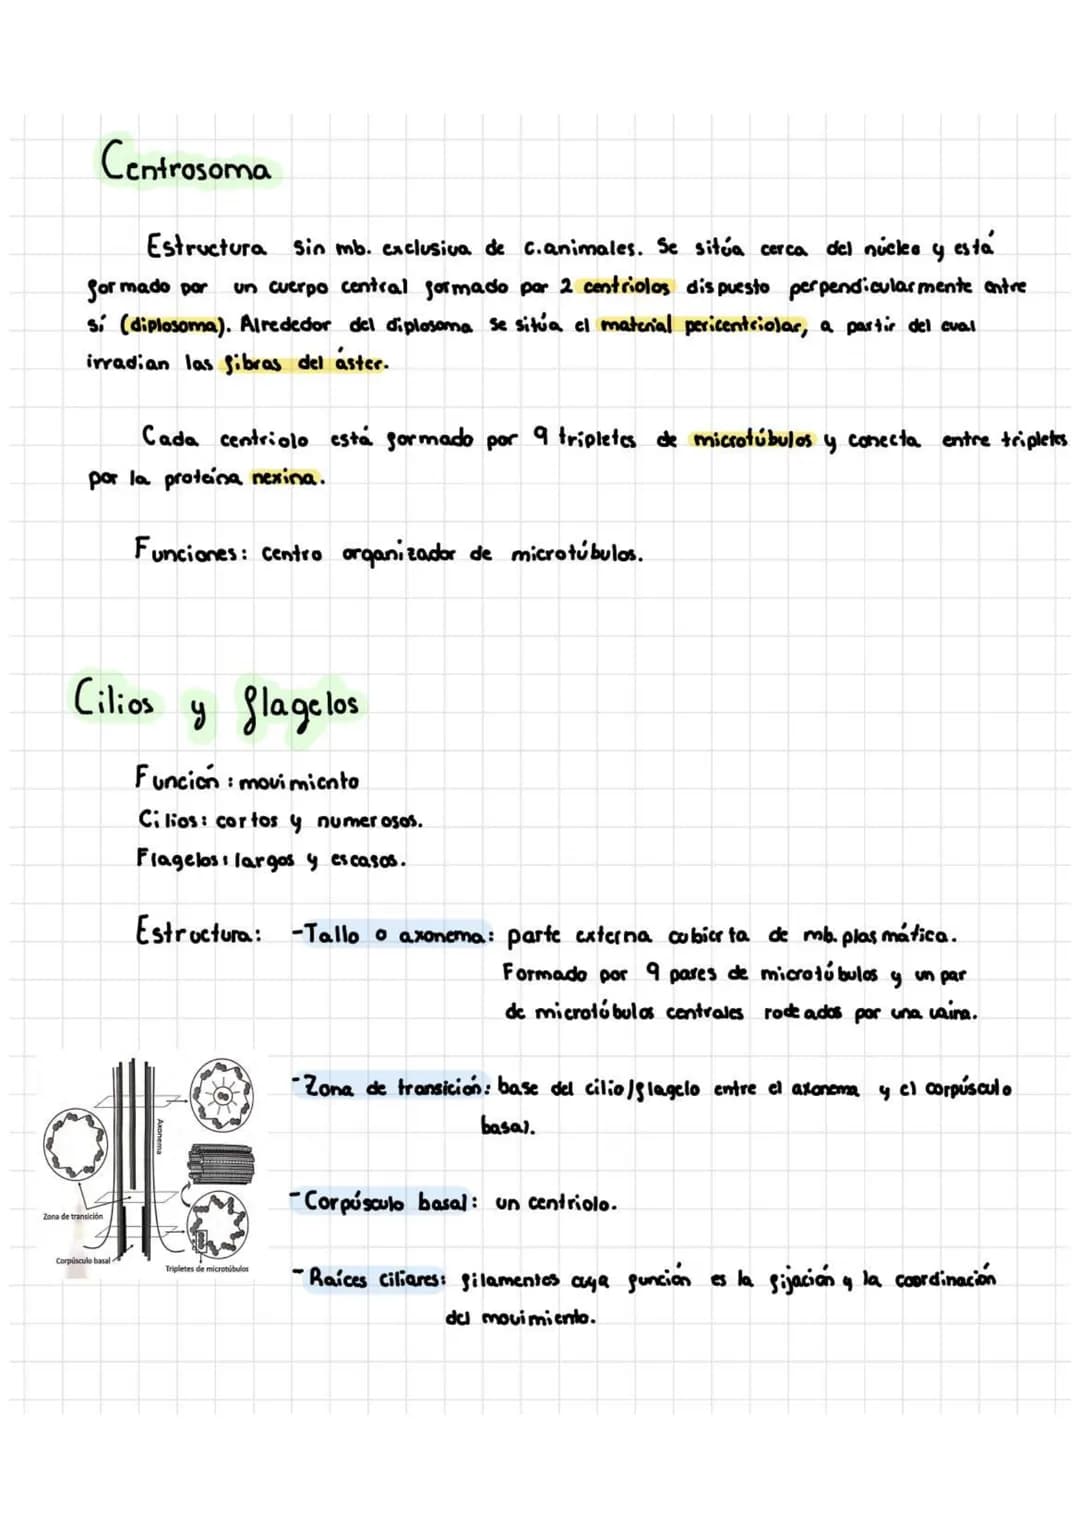 Centrosoma
Estructura sin mb. exclusiva de c.animales. Se sitúa cerca del núcleo y está
formado por un cuerpo central formado por 2 centriolos dispuesto perpendicularmente entre
sí (diplosoma). Alrededor del diplosoma se sitúa el material pericentriolar, a partir del cual
irradian las fibras del áster.
Cada centriolo está formado por 9 tripletes de microtúbulos y conecta entre tripletes
por la proteína nexina.
Funciones: centro organizador de microtúbulos.
Cilios y flagelos
Función: movimiento
Cilios: cortos y numerosos.
Flagelos: largos y escasos.
Estructura: -Tallo o axonema: parte externa cubierta de mb. plasmática.
Formado por 9 pares de microtúbulos y un par
de microtúbulos centrales rodeados por una vaina.
-Zona de transición: base del cilio/flagelo entre el axonema y el corpúsculo
basal.
-Corpúsculo basal: un centriolo.
-Raíces ciliares: filamentos cuya función es la fijación y la coordinación
del movimiento.
Axonema
Zona de transición
Corpúsculo basal
Tripletes de microtúbulos